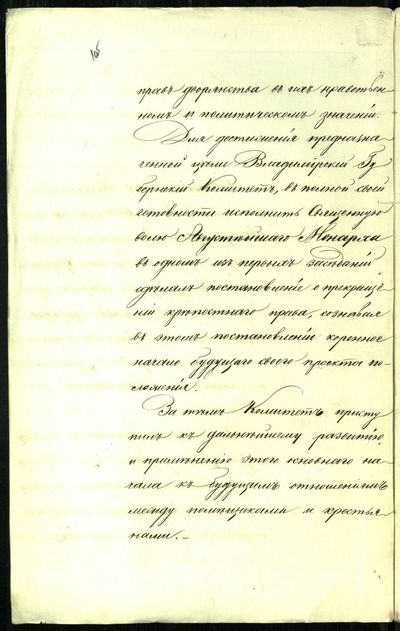 правъ дворянства въ ихъ нравствен
номъ и политическомъ значеніи.
Для достиженія предназна
ченной цѣли Владимірскій Гу
бернскій Комитетъ, въ полной своей
готовности исполнить Священную
волю Августѣйшаго Монарха
въ одномъ изъ первыхъ засѣданій
сдѣлалъ постановленіе о прекраще
ніи крѣпостнаго права, сознавая
въ этомъ постановленіи коренное
начало будущаго своего проекта по-
ложенія.
За тѣмъ Комитетъ присту
пилъ къ дальнѣйшему развитію
и примѣненію этого основнаго на
чала къ будущимъ отношеніямъ
между помѣщиками и крестья
нами.-